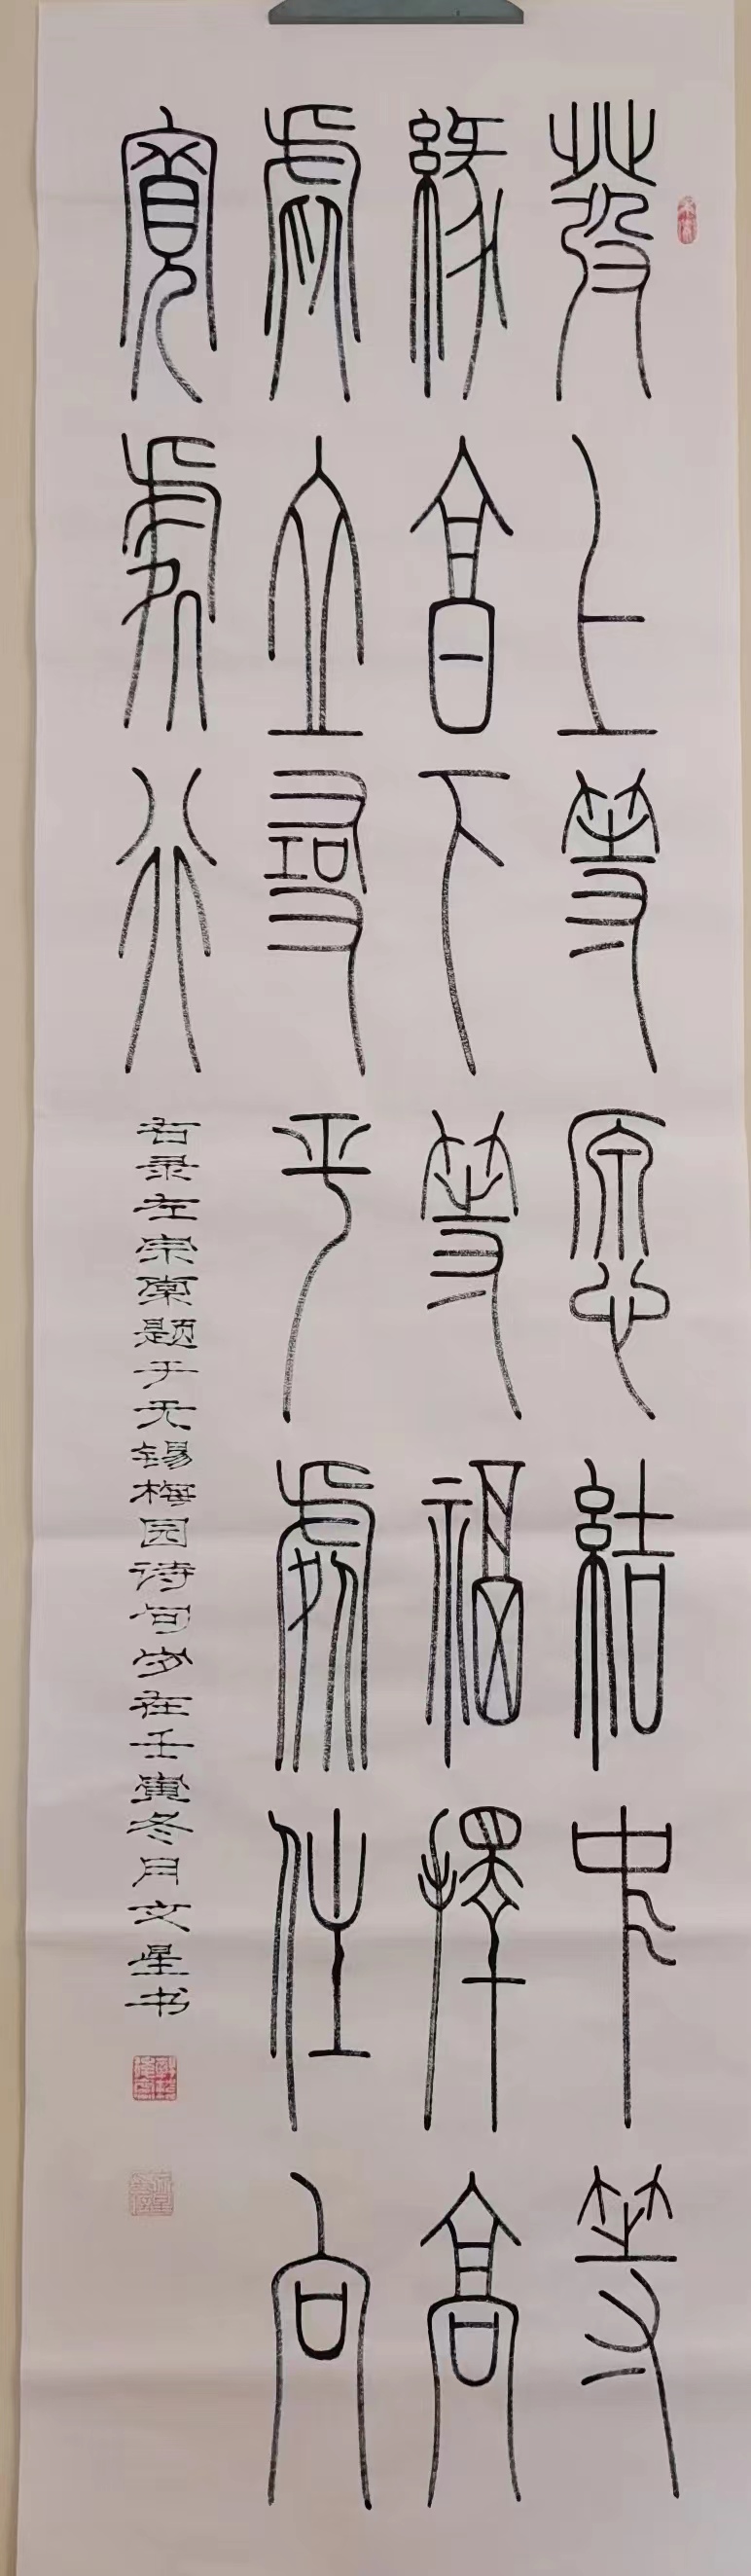 發上等愿結中等
緣享下等福擇高
處立尋平處住向
寬處行
右录左宗棠题于无锡梅园诗句岁在壬寅冬月文星书